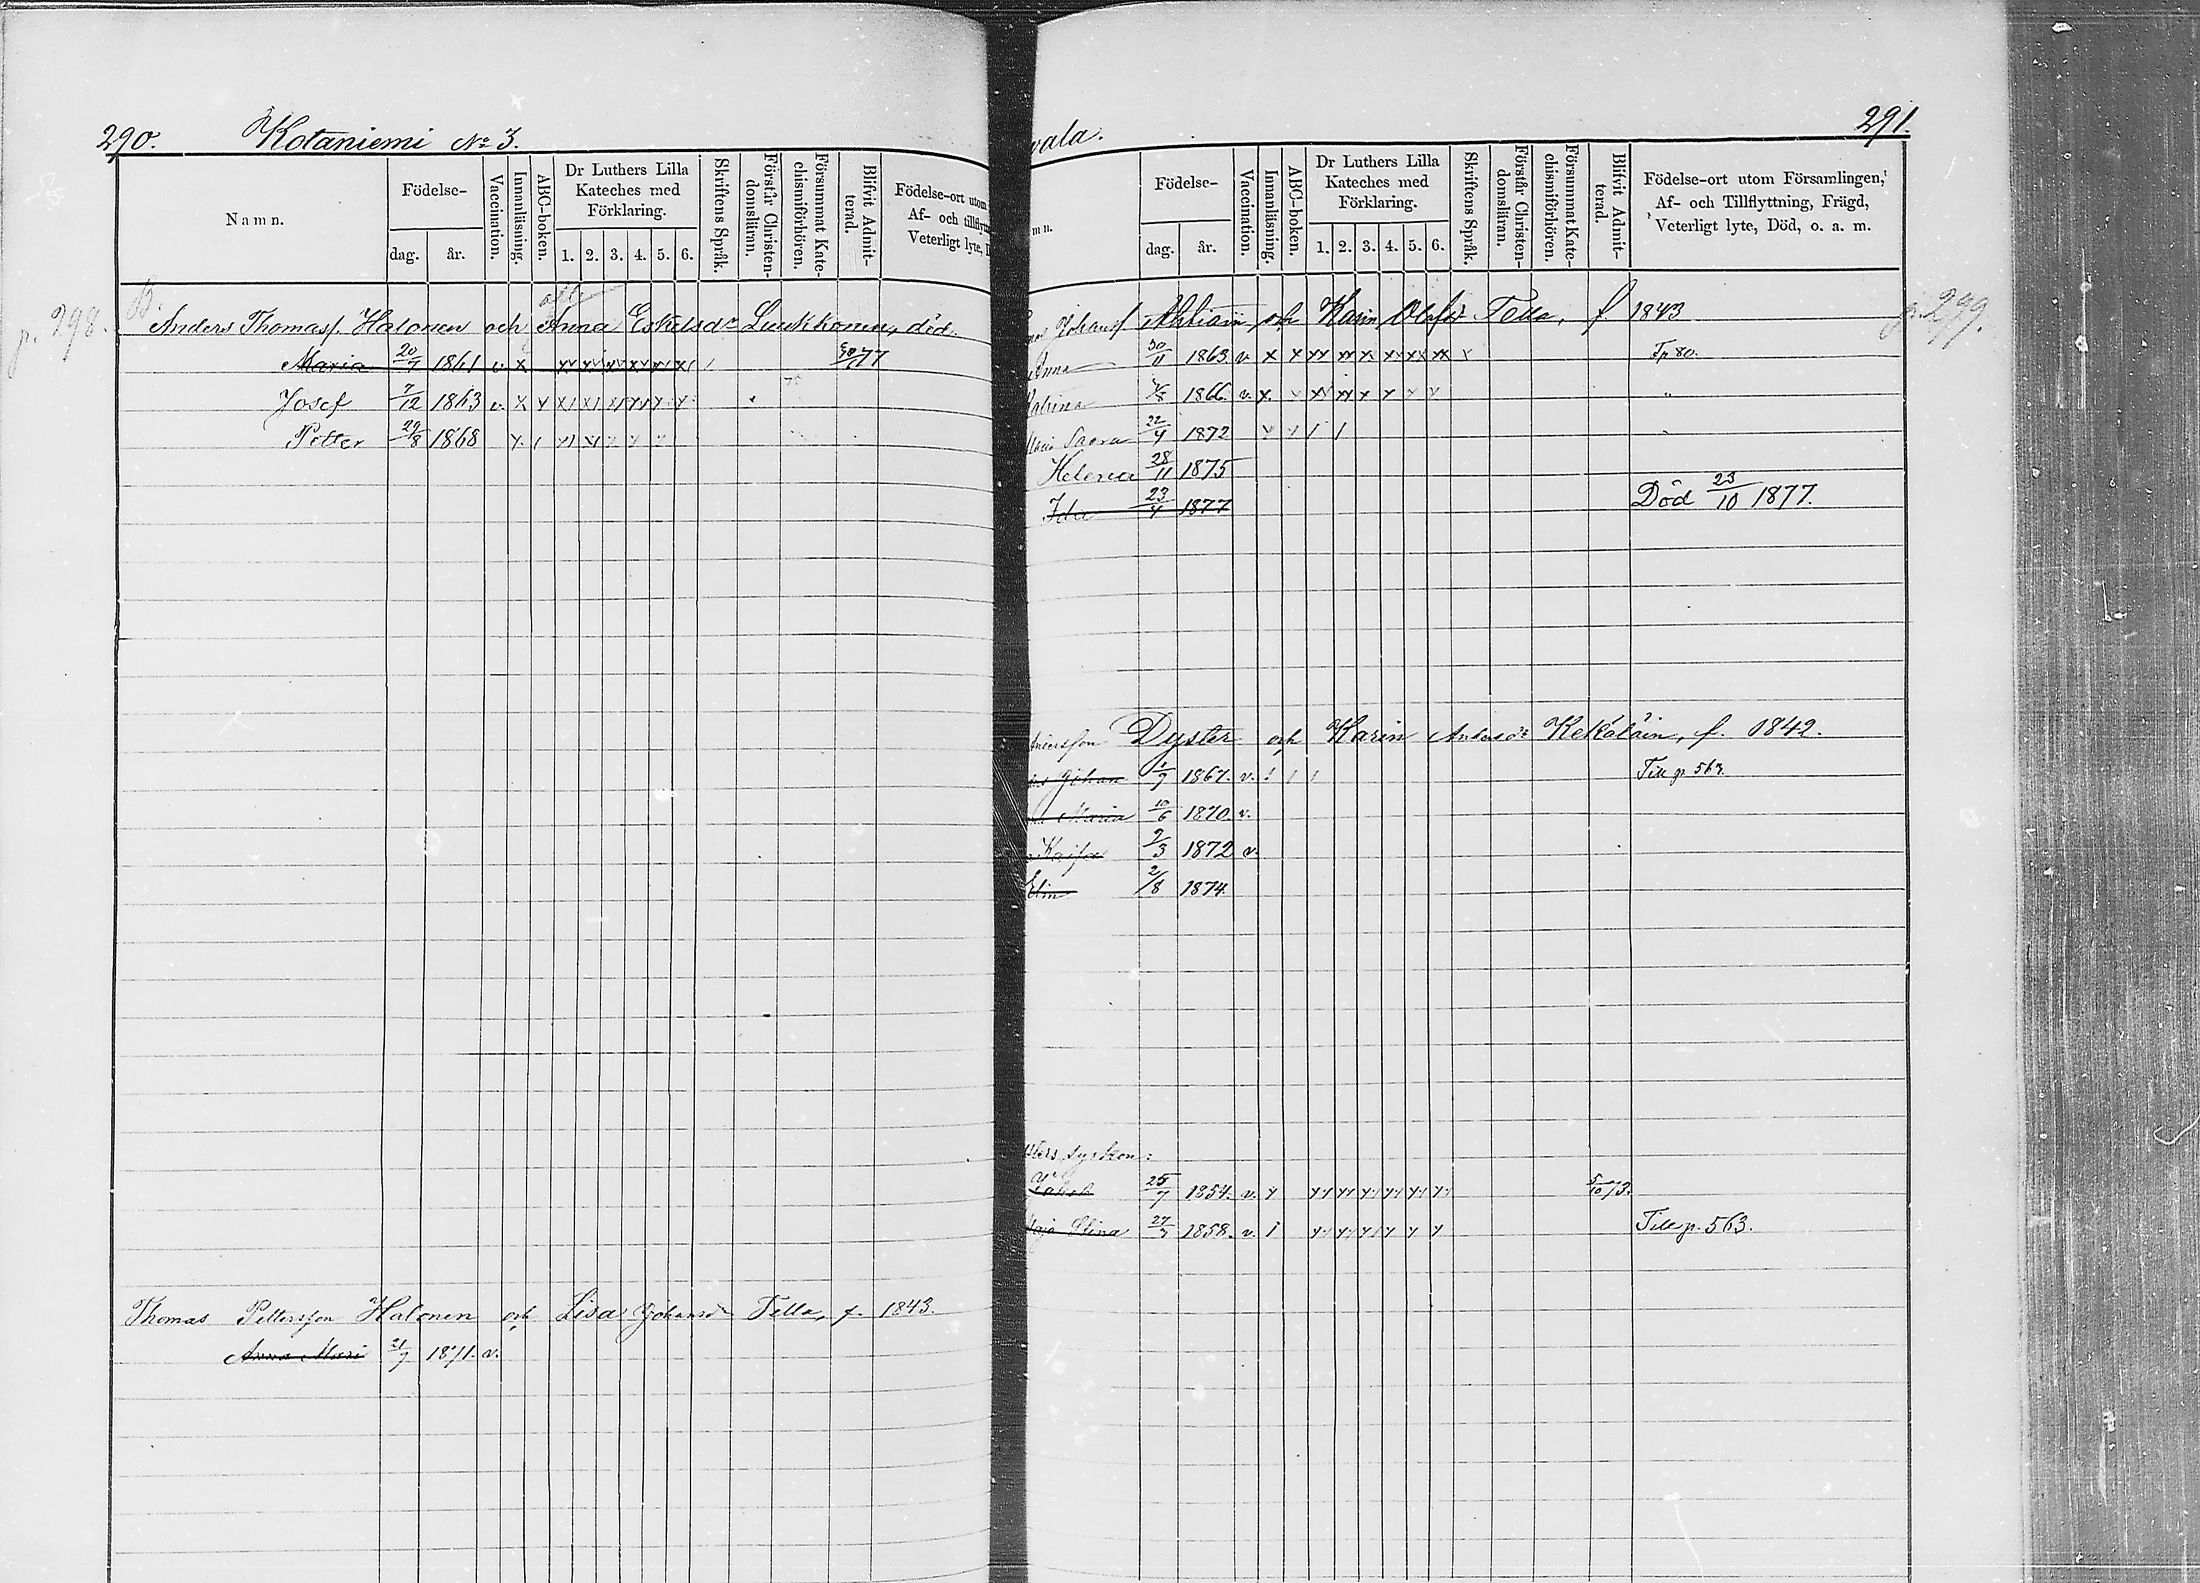 290. Kotaniemi No 3.
Namn.
Födelse-
dag. år.
Vaccination.
Innanläsning.
ABC-boken.
Dr Luthers Lilla
Kateches med
Förklaring.
1. 2. 3. 4. 5. 6.
Skriftens Språk.
Förstår Christen-
domsläran.
Försummat Kate-
chismiförhören.
Blifvit Admit-
terad.
Födelse-ort utom
Af- och tillflyttn
Veterligt lyte, D
p. 298.
B.
Anders Thomass. Halonen och Anna Eskelsdr Luukkonen, död.
Maria 20/7 1861 v. x
Josef 7/12 1863 v. x
Petter 29/8 1868
Thomas Pettersson Halonen och Lisa Johansdr Tella, f. 1843.
Anna Mari 21/7 1871. v.
vala. 291.
mn.
Födelse-
dag. år.
Vaccination.
Innanläsning.
ABC-boken.
Dr Luthers Lilla
Kateches med
Förklaring.
1. 2. 3. 4. 5. 6.
Skriftens Språk.
Förstår Christen-
domsläran.
Försummat Kate-
chismiförhören.
Blifvit Admit-
terad.
Födelse-ort utom Församlingen,
Af- och Tillflyttning, Frägd,
Veterligt lyte, Död, o. a. m.
p. 299.
Johanss. Ahliain och Karin Olafsd Tella, f. 1843
Anna 30/11 1863. v. x Fp 80.
Katrina 1866. v. x.
Maria Saara 22/4 1872
Helena 28/11 1875
Ida 23/4 1877 Död 23/10 1877.
Dyster och Karin Andersdr Kekäläin, f. 1842.
Johan 1/7 1867. v. Till p. 563.
Maria 10/6 1870. v.
Kaisa 9/3 1872 v.
Elin 2/8 1874
sters syskon:
Jakob 25/7 1854. v. 5/10 73.
Maja Stina 27/7 1858. v. Till p. 563.